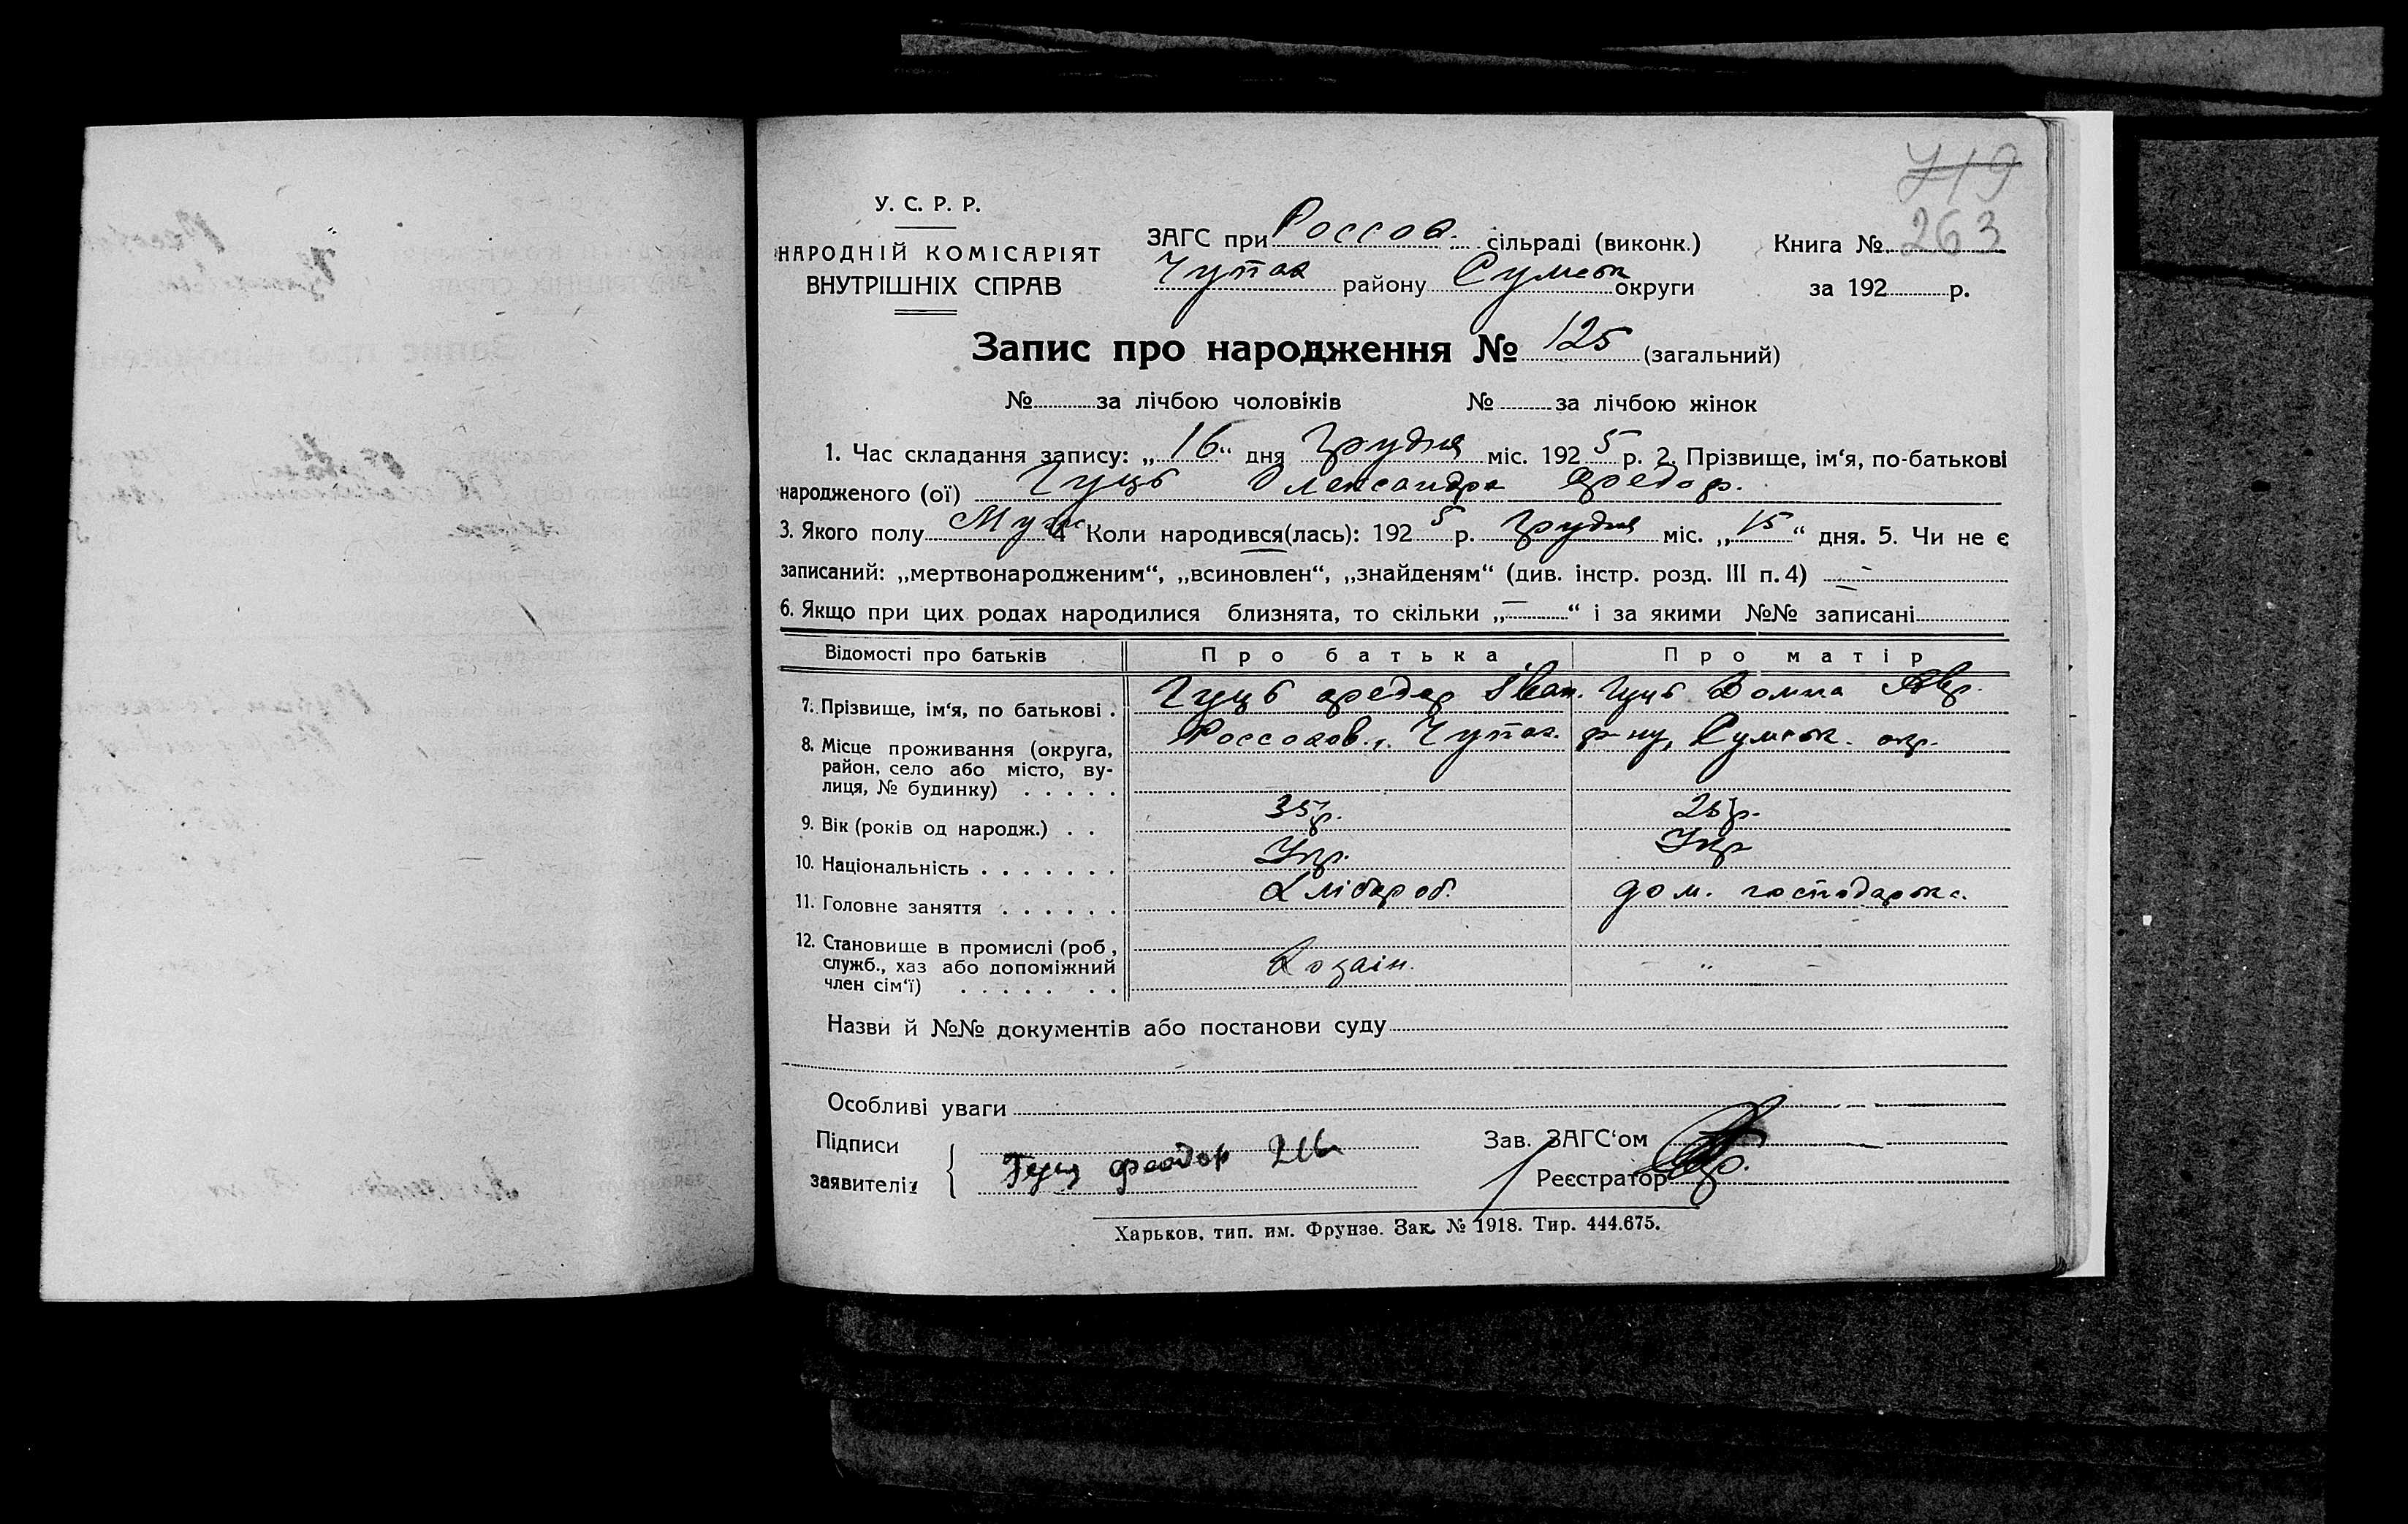 719
263
У. С. Р. Р.
НАРОДНІЙ КОМІСАРІЯТ
ВНУТРІШНІХ СПРАВ
ЗАГС при Россов. сільраді (виконк.)
Чупах району Сумськ округи
Книга №
за 192 р.
Запис про народження № 125 (загальний)
№ за лічбою чоловіків № за лічбою жінок
1. Час складання запису: „16“ дня Грудня міс. 1925 р. 2. Прізвище, ім‘я, по-батькові
народженого (ої) Гуць Олександра Федор.
3. Якого полу Муж 4 Коли народився(лась): 1925 р. Грудня міс. „15“ дня. 5. Чи не є
записаний: „мертвонародженим“, „всиновлен“, „знайденям“ (див. інстр. розд. III п. 4) —
6. Якщо при цих родах народилися близнята, то скільки „—“ і за якими №№ записані
Відомості про батьків Про батька Про матір
7. Прізвище, ім‘я, по батькові . Гуць Федор Іван. Гуць Домна
8. Місце проживання (округа, Чупах. р-ну, Сумськ. окр.
район, село або місто, ву-
лиця, № будинку) . . . . .
9. Вік (років од народж.) . . 35 р. 25 р.
10. Національність . . . . . . . Укр. Укр
11. Головне заняття . . . . . . Хлібороб. дом. господарка.
12. Становище в промислі (роб,
служб., хаз або допоміжний Хозаїн. — „ —
член сім‘ї) . . . . . . .
Назви й №№ документів або постанови суду
Особливі уваги
Підписи
заявителів Гуц феодор
Зав. ЗАГС‘ом
Реєстратор
Харьков, тип. им. Фрунзе. Зак. № 1918. Тир. 444.675.